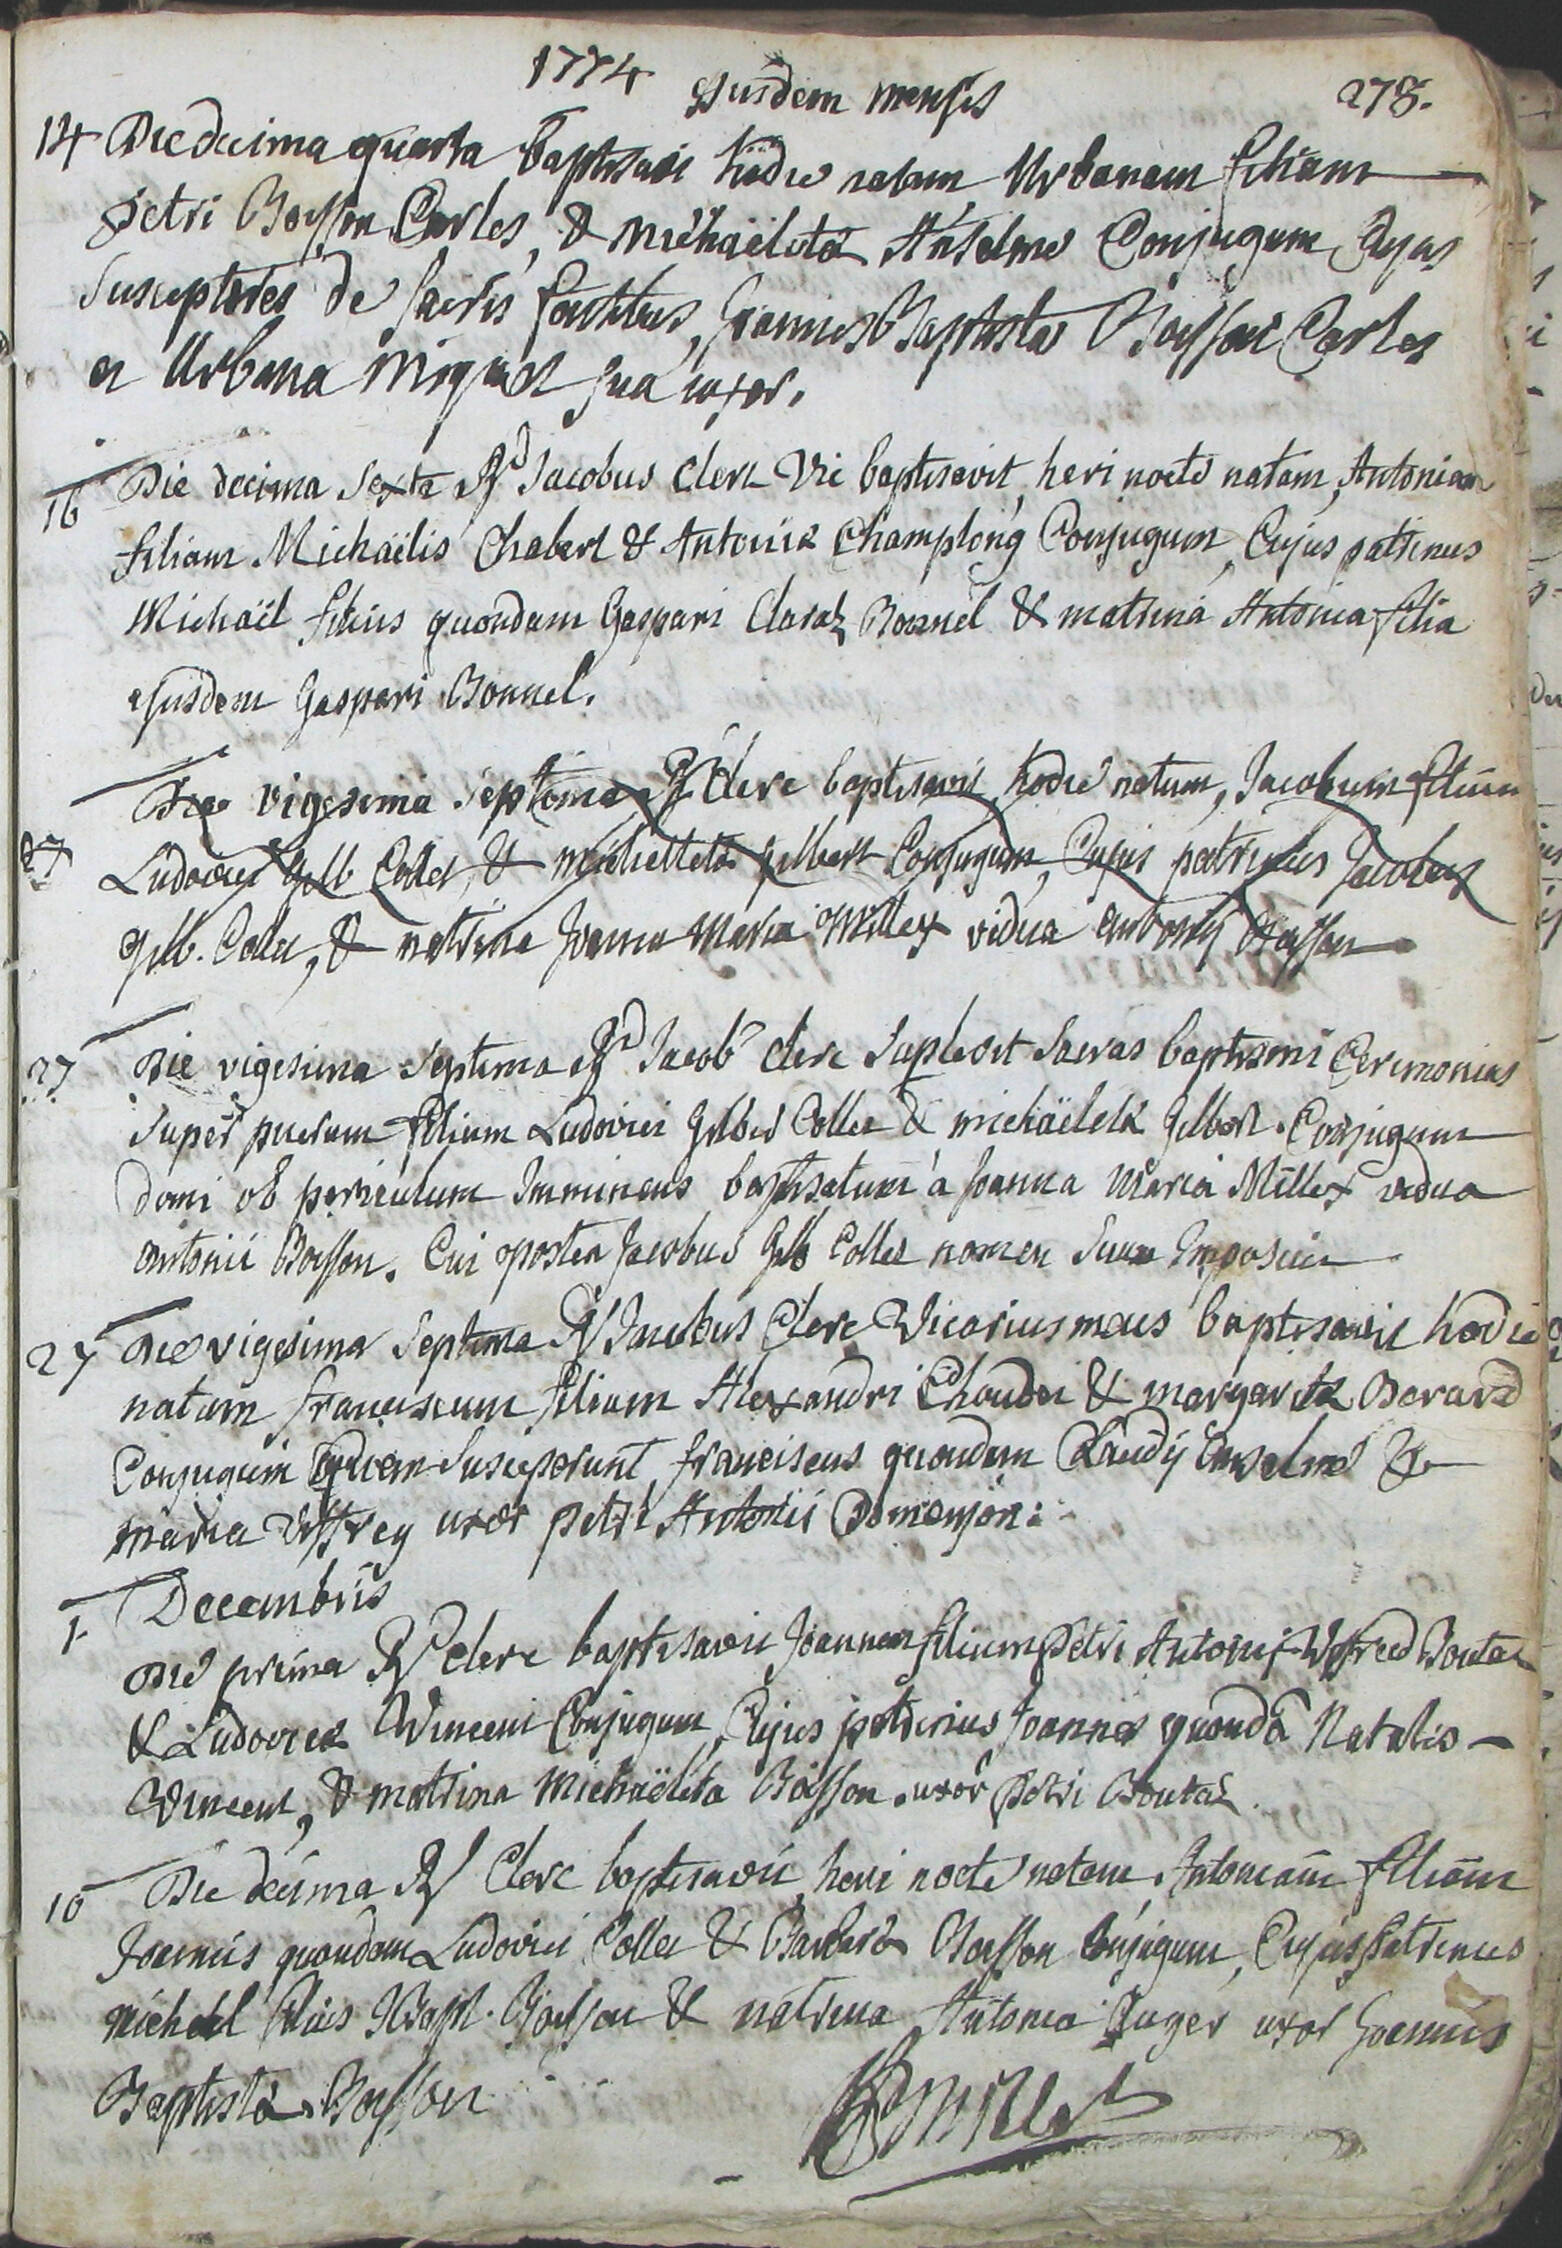 1774 Ejusdem mensis 278.
14 Die decima quarta baptisavi hodie natam Urbanam filiam
Petri Boisson Carles, & Michaëleta Anselme Conjugum Cujus
Susceptores de sacris fontibus, Joannes Baptista Boisson Carles
et Urbana Miquet sua uxor.
16 Die decima sexta Rd Jacobus Clerc Vic baptisavit, heri nocte natam, Antoniam
filiam Michaëlis Chabert & Antoniæ Champlong Conjugum, Cujus patrinus
Michaël filius quondam Gaspari Claraz Bonnel & matrina Antonia filia
ejusdem Gaspari Bonnel.
27 Die vigesima septima Rd Clerc baptisavit hodie natum, Jacobum filium
Ludovici Gilb Collet, & Michelleta Gilbert Conjugum, Cujus patrinus Jacobus
Gilb. Collet, & matrina Joanna Maria Millex vidua Antonij Boisson
27 Die vigesima septima Rd Jacob Clerc Suplevit Sacras baptismi Ceremonias
Super puerum filium Ludovici Gilber Collet & michäeletæ Gilbert. Conjugum
domi ob periculum Imminens baptisatum a Joanna Maria Millex vidua
Antonii Boisson. Cui postea Jacobus Gilb Collet nomen Suum Imposuit
27 Die vigesima Septima Rd Jacobus Clerc Vicarius meus baptisavit hodie
natum franciscum filium Alexandri Choudei & margaritæ Berard
Conjugum quem Susceperunt franciscus quondam Claudij Anselme &
maria Uffrey uxor petri Antonii Domenjon:
1. Decembris
Die prima Rd Clerc baptisavit Joannem filium Petri Antonij Uffred Boutaz
& Ludovicæ Vincent Conjugum, Cujus patrinus Joannes quondã Natalis
Vincent, & matrina Michaëleta Boisson uxor Petri Boutaz.
10 Die decima Rd Clerc baptisavit, heri nocte natam Antoniam filiam
Joannis quondam Ludovici Collet & Barbara Boisson Conjugum, Cujus Patrinus
Michael filius JBapt. Boisson & matrina Antonia Auger uxor Joannis
Baptista Boisson
Millet